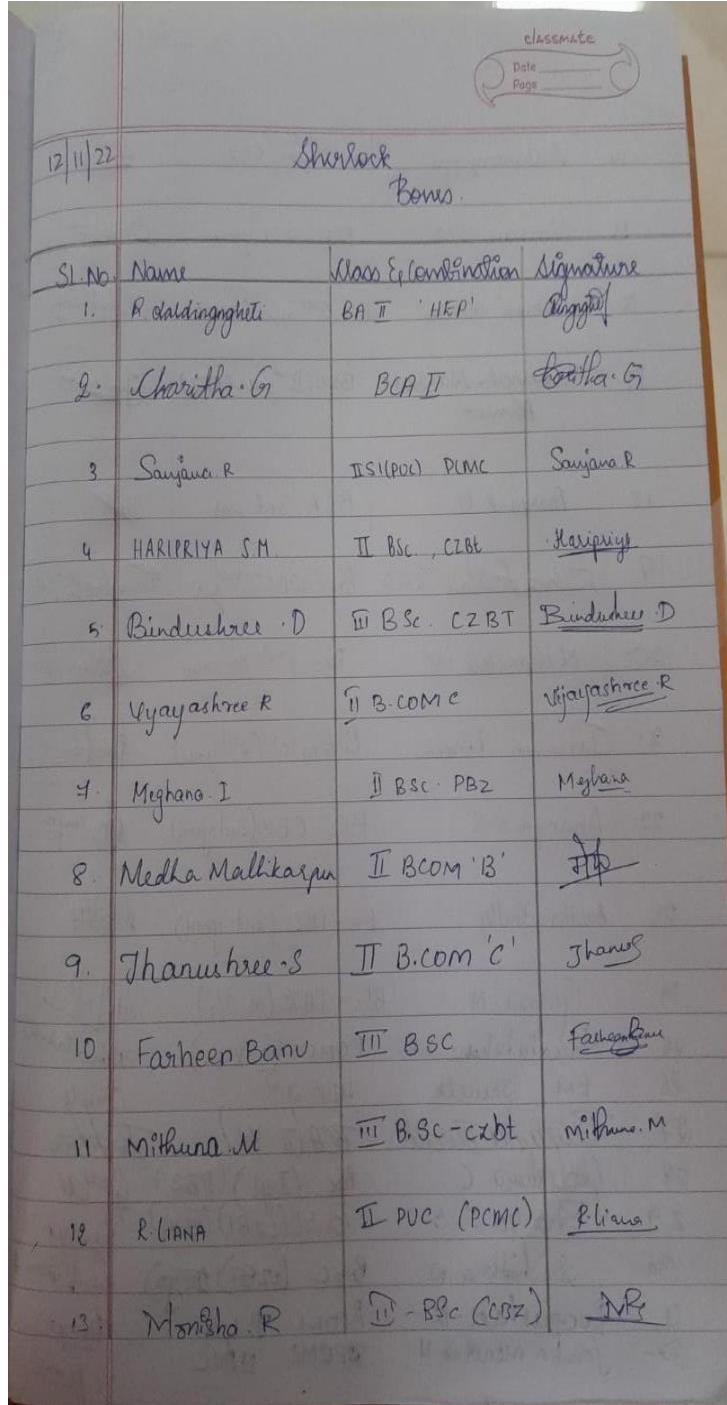 classmate
Date
Page
12/11/22 Sherlock
Bones.
Sl.No. Name Class & Combination Signature
1. R Laldingngheti BA II 'HEP'
2. Charitha.G BCA II
3 Sanjana R IIS1(PUC) PCMC Sanjana R
4 HARIPRIYA S.M II BSc, CZBt Haripriya
5. Bindushree.D III BSc. CZBT Bindushree.D
6 Vijayashree R II B.COM C Vijayashree R
7. Meghana.I II BSc. PBZ Meghana
8. Medha Mallikarjun II BCOM 'B'
9. Thanushree.S II B.com 'C' ThanuS
10 Farheen Banu III BSC FarheenBanu
11 Mithuna.M III B.Sc-czbt Mithuna.M
12 R.LIANA II PUC (PCMC) R.liana
13. Monisha.R II-BSc (CBZ)